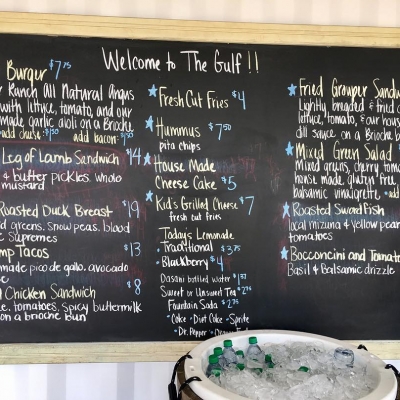 Welcome to The Gulf !!
Burger $7.75
Ranch All Natural Angus
with lettuce, tomato, and our
made garlic aioli on a Brioche
add cheese $1.50 add bacon $1.50
Leg of Lamb Sandwich $14
& butter pickles, whole
mustard
Roasted Duck Breast $19
greens, snow peas, blood
supremes
Tacos $13
made pico de gallo, avocado
Chicken Sandwich $8
tomatoes, spicy buttermilk
on a brioche bun
Fresh Cut Fries $4
Hummus $7.50
pita chips
House Made
Cheese Cake $5
Kid's Grilled Cheese $7
fresh cut fries
Today's Lemonade
• Traditional $3.75
• Blackberry $4
Dasani bottled water
Sweet or Unsweet Tea
Fountain Soda
• Coke • Diet Coke • Sprite
• Dr. Pepper
Fried Grouper
Lightly breaded & fried
lettuce, tomato, & our house
dill sauce on a Brioche
Mixed Green Salad
Mixed greens, cherry
house made, gluten free
balsamic vinaigrette
Roasted Swordfish
local mizuna & yellow
tomatoes
Bocconcini and
Basil & Balsamic drizzle